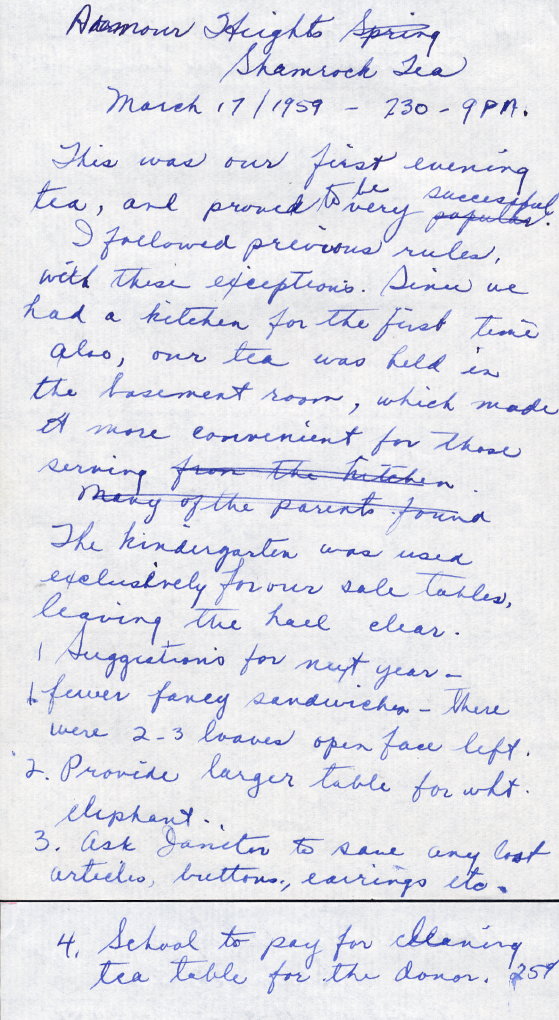 Armour Heights Spring
Shamrock Tea
March 17/1959 - 730 - 9 PM.
This was our first evening
tea, and proved to be very popular successful.
I followed previous rules,
with these exceptions. Since we
had a kitchen for the first time
also, our tea was held in
the basement room, which made
it more convenient for those
serving from the kitchen.
Many of the parents found
The kindergarten was used
exclusively for our sale tables,
leaving the hall clear.
1 Suggestions for next year -
1. fewer fancy sandwiches - There
were 2-3 loaves open face left.
2. Provide larger table for wht.
elephant.
3. Ask Janitor to save any lost
articles, buttons, earrings etc.
4. School to pay for cleaning
tea table for the donor.